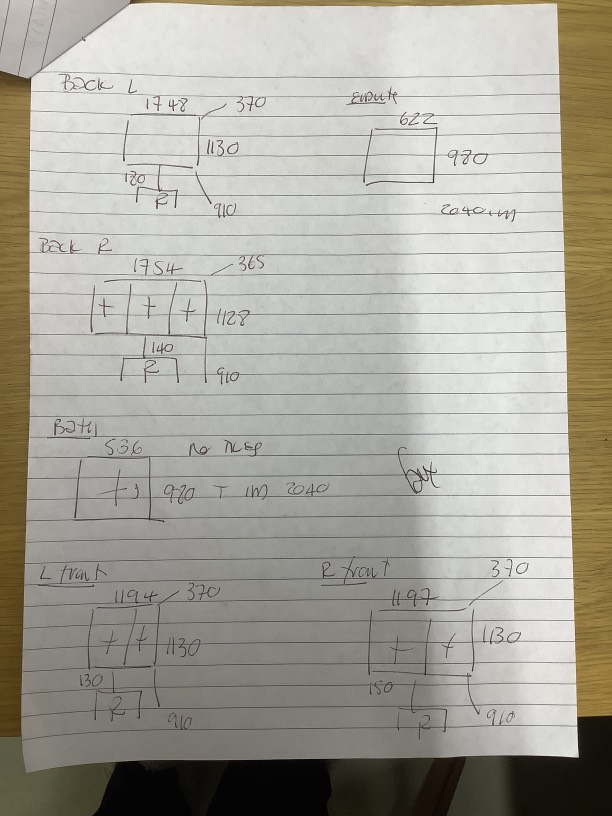 Back L
1748
370
1130
180
R
910
Ensuite
622
980
2040 1M
Back R
1754
365
1128
140
R
910
Bath
536
980 T 1M 2040
L front
1194
370
1130
130
R
910
R front
1197
370
1130
150
R
910